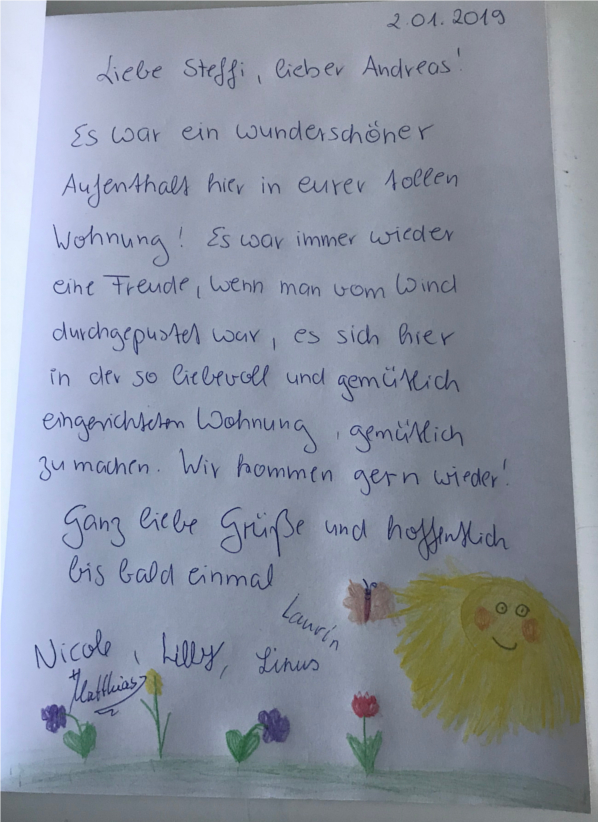 2.01.2019
Liebe Steffi, lieber Andreas!
Es war ein wunderschöner
Aufenthalt hier in eurer tollen
Wohnung! Es war immer wieder
eine Freude, wenn man vom Wind
durchgepustet war, es sich hier
in der so liebevoll und gemütlich
eingerichteten Wohnung, gemütlich
zu machen. Wir kommen gern wieder!
Ganz liebe Grüße und hoffentlich
bis bald einmal
Laurin
Nicole, Lilly, Linus
Matthias